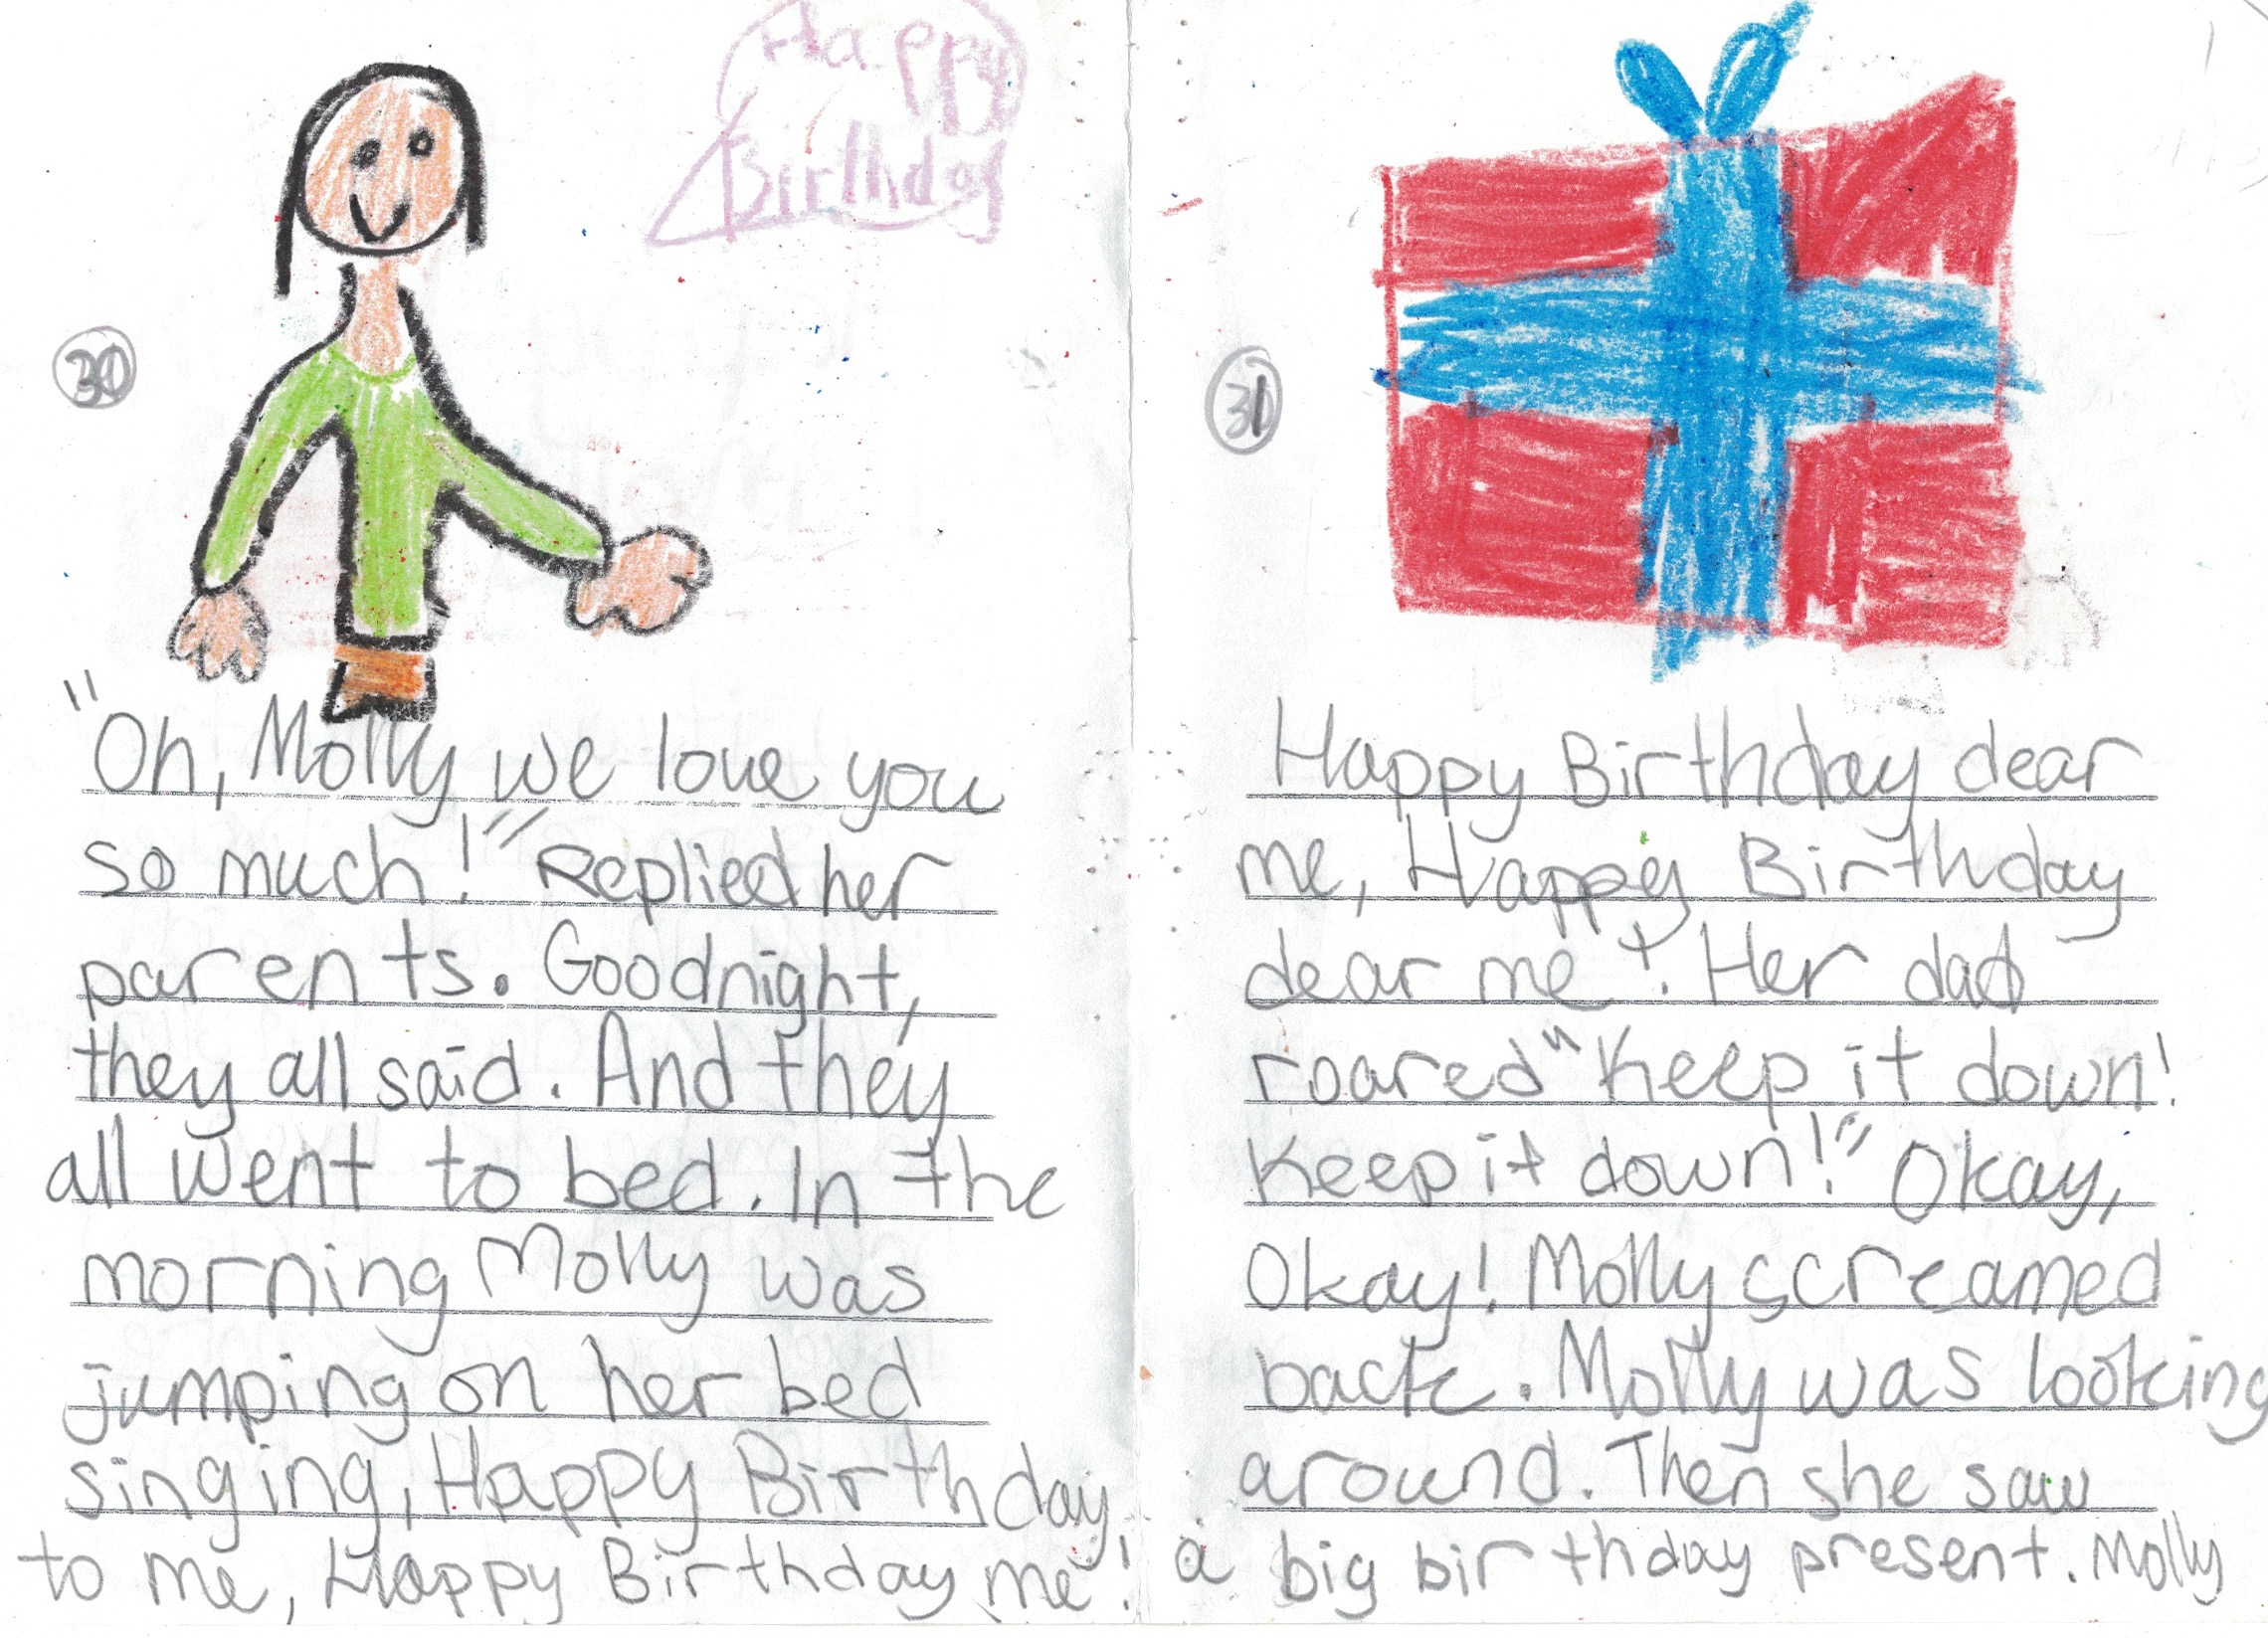 Happy
Birthday
30
"Oh, Molly we love you
so much!" Replied her
parents. Goodnight,
they all said. And they
all went to bed. In the
morning Molly was
jumping on her bed
singing, Happy Birthday
to me, Happy Birthday me!
31
Happy Birthday dear
me, Happy Birthday
dear me! Her dad
roared "Keep it down!
Keep it down!" Okay,
Okay! Molly screamed
back. Molly was looking
around. Then she saw
a big birthday present. Molly